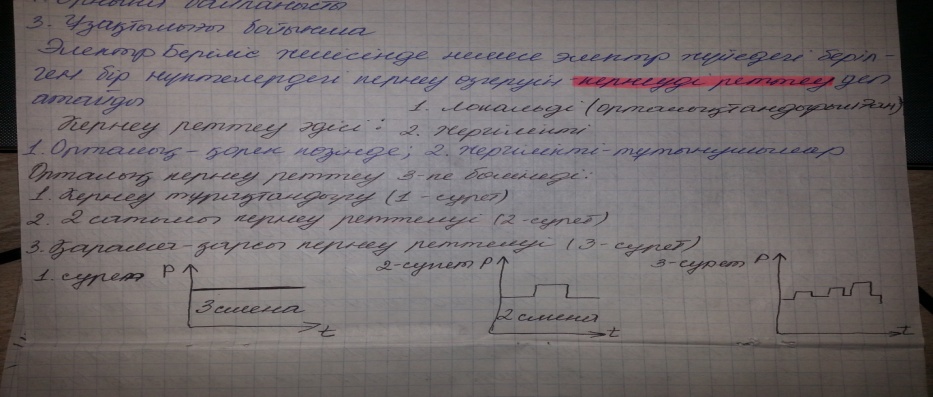 байланысты
3. Ұзақтылығы бойынша
Электр беріліс желісінде немесе электр жүйедегі беріл-
ген бір нүктелердегі кернеу өзгеруін кернеуді реттеу деп
атайды
1. Локальді (орталықтандырылған)
Кернеу реттеу әдісі: 2. Жергілікті
1. Орталық - қорек көзінде; 2. Жергілікті - тұтынушылар
Орталық кернеу реттеу 3-ке бөлінеді:
1. Кернеу тұрақтандыру (1-сурет)
2. 2 сатылы кернеу реттелуі (2-сурет)
3. Қарама-қарсы кернеу реттелуі (3-сурет)
1. сурет P 2-сурет P 3-сурет P
3 смена 2 смена
t t t